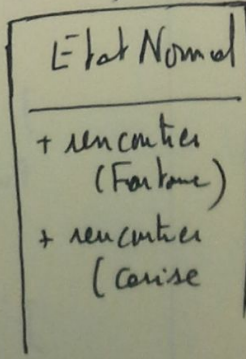 Etat Normal
+ rencontrer
(Fantome)
+ rencontrer
(Cerise